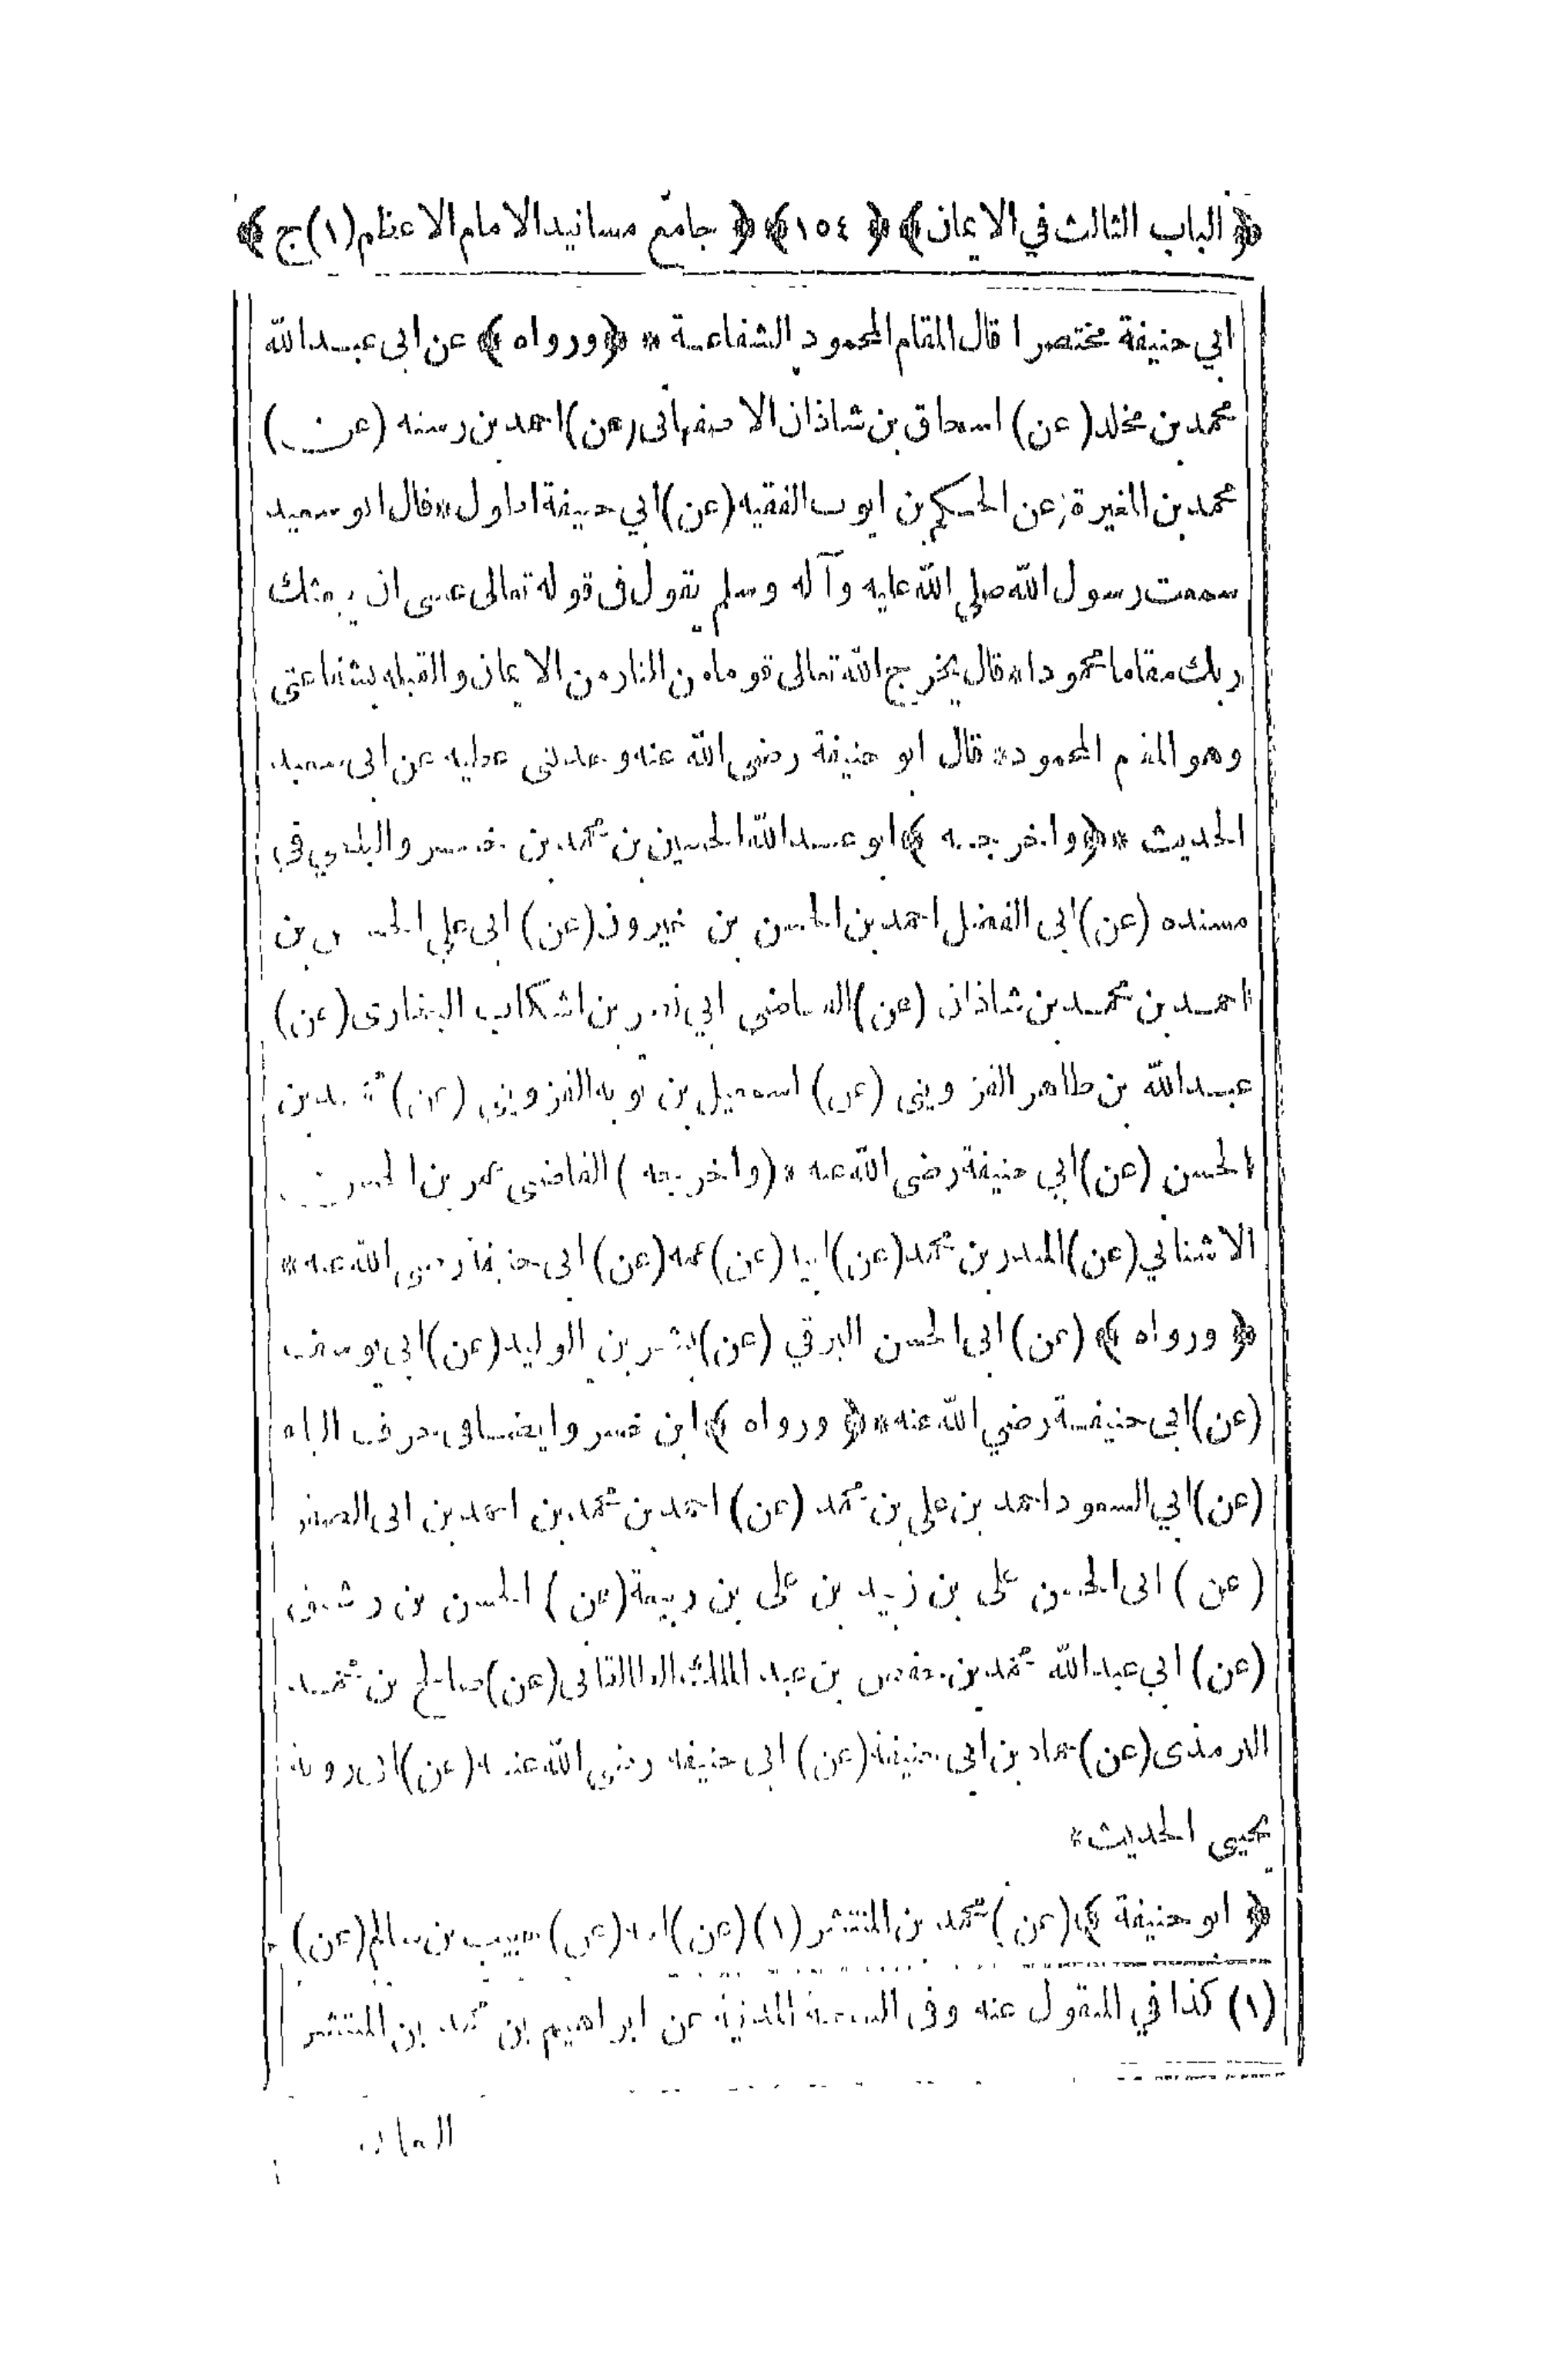 ﴿ الباب الثالث في الايمان ﴾ ﴿ ١٥٤ ﴾ ﴿ جامع مسانيد الامام الاعظم (١) ج ﴾
ابي حنيفة مختصرا قال المقام المحمود الشفاعة * ﴿ ورواه ﴾ عن ابى عبد الله
محمد بن مخلد (عن) اسحاق بن شاذان الاصفهانى (عن) احمد بن رسته (عن)
محمد بن المغيرة (عن الحكم بن ايوب الفقيه (عن) ابي حنيفة اطول * قال ابو سعيد
سمعت رسول الله صلي الله عليه وآله وسلم يقول فى قوله تعالى عسى ان يبعثك
ربك مقاما محمودا * قال يخرج الله تعالى قوما من النار من الايمان والقبلة بشفاعتى
وهو المقام المحمود * قال ابو حنيفة رضي الله عنه وحدثنى عطية عن ابى سعيد
الحديث * ﴿ واخرجه ﴾ ابو عبد الله الحسين بن محمد بن خسرو البلخي في
مسنده (عن) ابى الفضل احمد بن الحسن بن خيرون (عن) ابى علي الحسن بن
احمد بن محمد بن شاذان (عن) القاضى ابي نصر بن اشكاب البخارى (عن)
عبد الله بن طاهر القزوينى (عن) اسمعيل بن توبه القزويني (عن) محمد بن
الحسن (عن) ابي حنيفة رضى الله عنه * (واخرجه) القاضى عمر بن الحسن
الاشناني (عن) المنذر بن محمد (عن) ابيه (عن) عمه (عن) ابى حنيفة رضى الله عنه *
﴿ ورواه ﴾ (عن) ابى الحسن البرقي (عن) بشر بن الوليد (عن) ابى يوسف
(عن) ابى حنيفة رضي الله عنه * ﴿ ورواه ﴾ ابن خسرو ايضا فى حرف الياء
(عن) ابي السعود احمد بن علي بن محمد (عن) احمد بن محمد بن احمد بن ابى الصقر
(عن) ابى الحسن على بن زيد بن على بن ربيعة (عن) الحسن بن رشيق
(عن) ابي عبد الله محمد بن حفص بن عبد الملك الطالقانى (عن) صالح بن محمد
الترمذى (عن) حماد بن ابى حنيفة (عن) ابى حنيفه رضي الله عنه (عن) ابى روبة
يحيى الحديث *
﴿ ابو حنيفة ﴾ (عن) محمد بن المنتشر (١) (عن) ابيه (عن) حبيب بن سالم (عن)
(١) كذا في المنقول عنه وفى النسخة المدنية عن ابراهيم بن محمد بن المنتشر